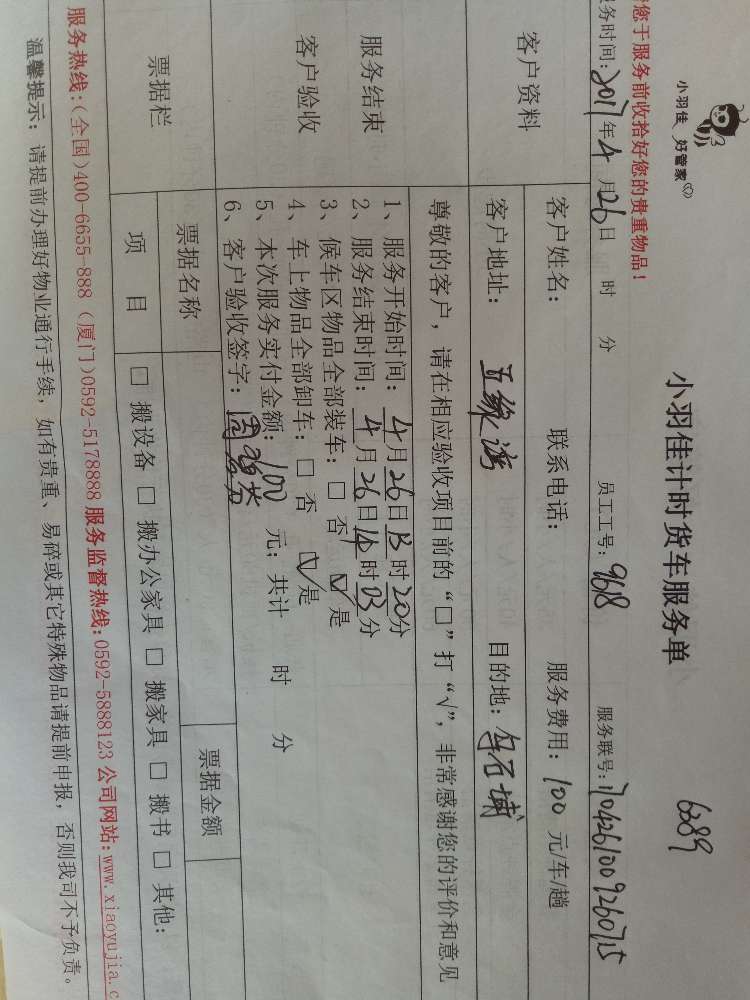 小羽佳 好管家
6389
小羽佳计时货车服务单
您于服务前收拾好您的贵重物品！
务时间：2017年4月26日 时 分 员工工号：9618 服务联号：170426100926075
客户资料
客户姓名： 联系电话： 服务费用：100 元/车/趟
客户地址：五缘湾 目的地：乌石埔
服务结束
客户验收
尊敬的客户，请在相应验收项目前的“□”打“√”，非常感谢您的评价和意见
1、服务开始时间：4月26日13时20分
2、服务结束时间：4月26日14时03分
3、候车区物品全部装车：□ 否 ☑ 是
4、车上物品全部卸车：□ 否 ☑ 是
5、本次服务实付金额：100 元；共计 时 分
6、客户验收签字：
票据栏
票据名称 票据金额
项 目 □ 搬设备 □ 搬办公家具 □ 搬家具 □ 搬书 □ 其他：
服务热线：(全国)400-6655-888 (厦门)0592-5178888 服务监督热线：0592-5888123 公司网站：www.xiaoyujia.c
温馨提示：请提前办理好物业通行手续，如有贵重、易碎或其它特殊物品请提前申报，否则我司不予负责。